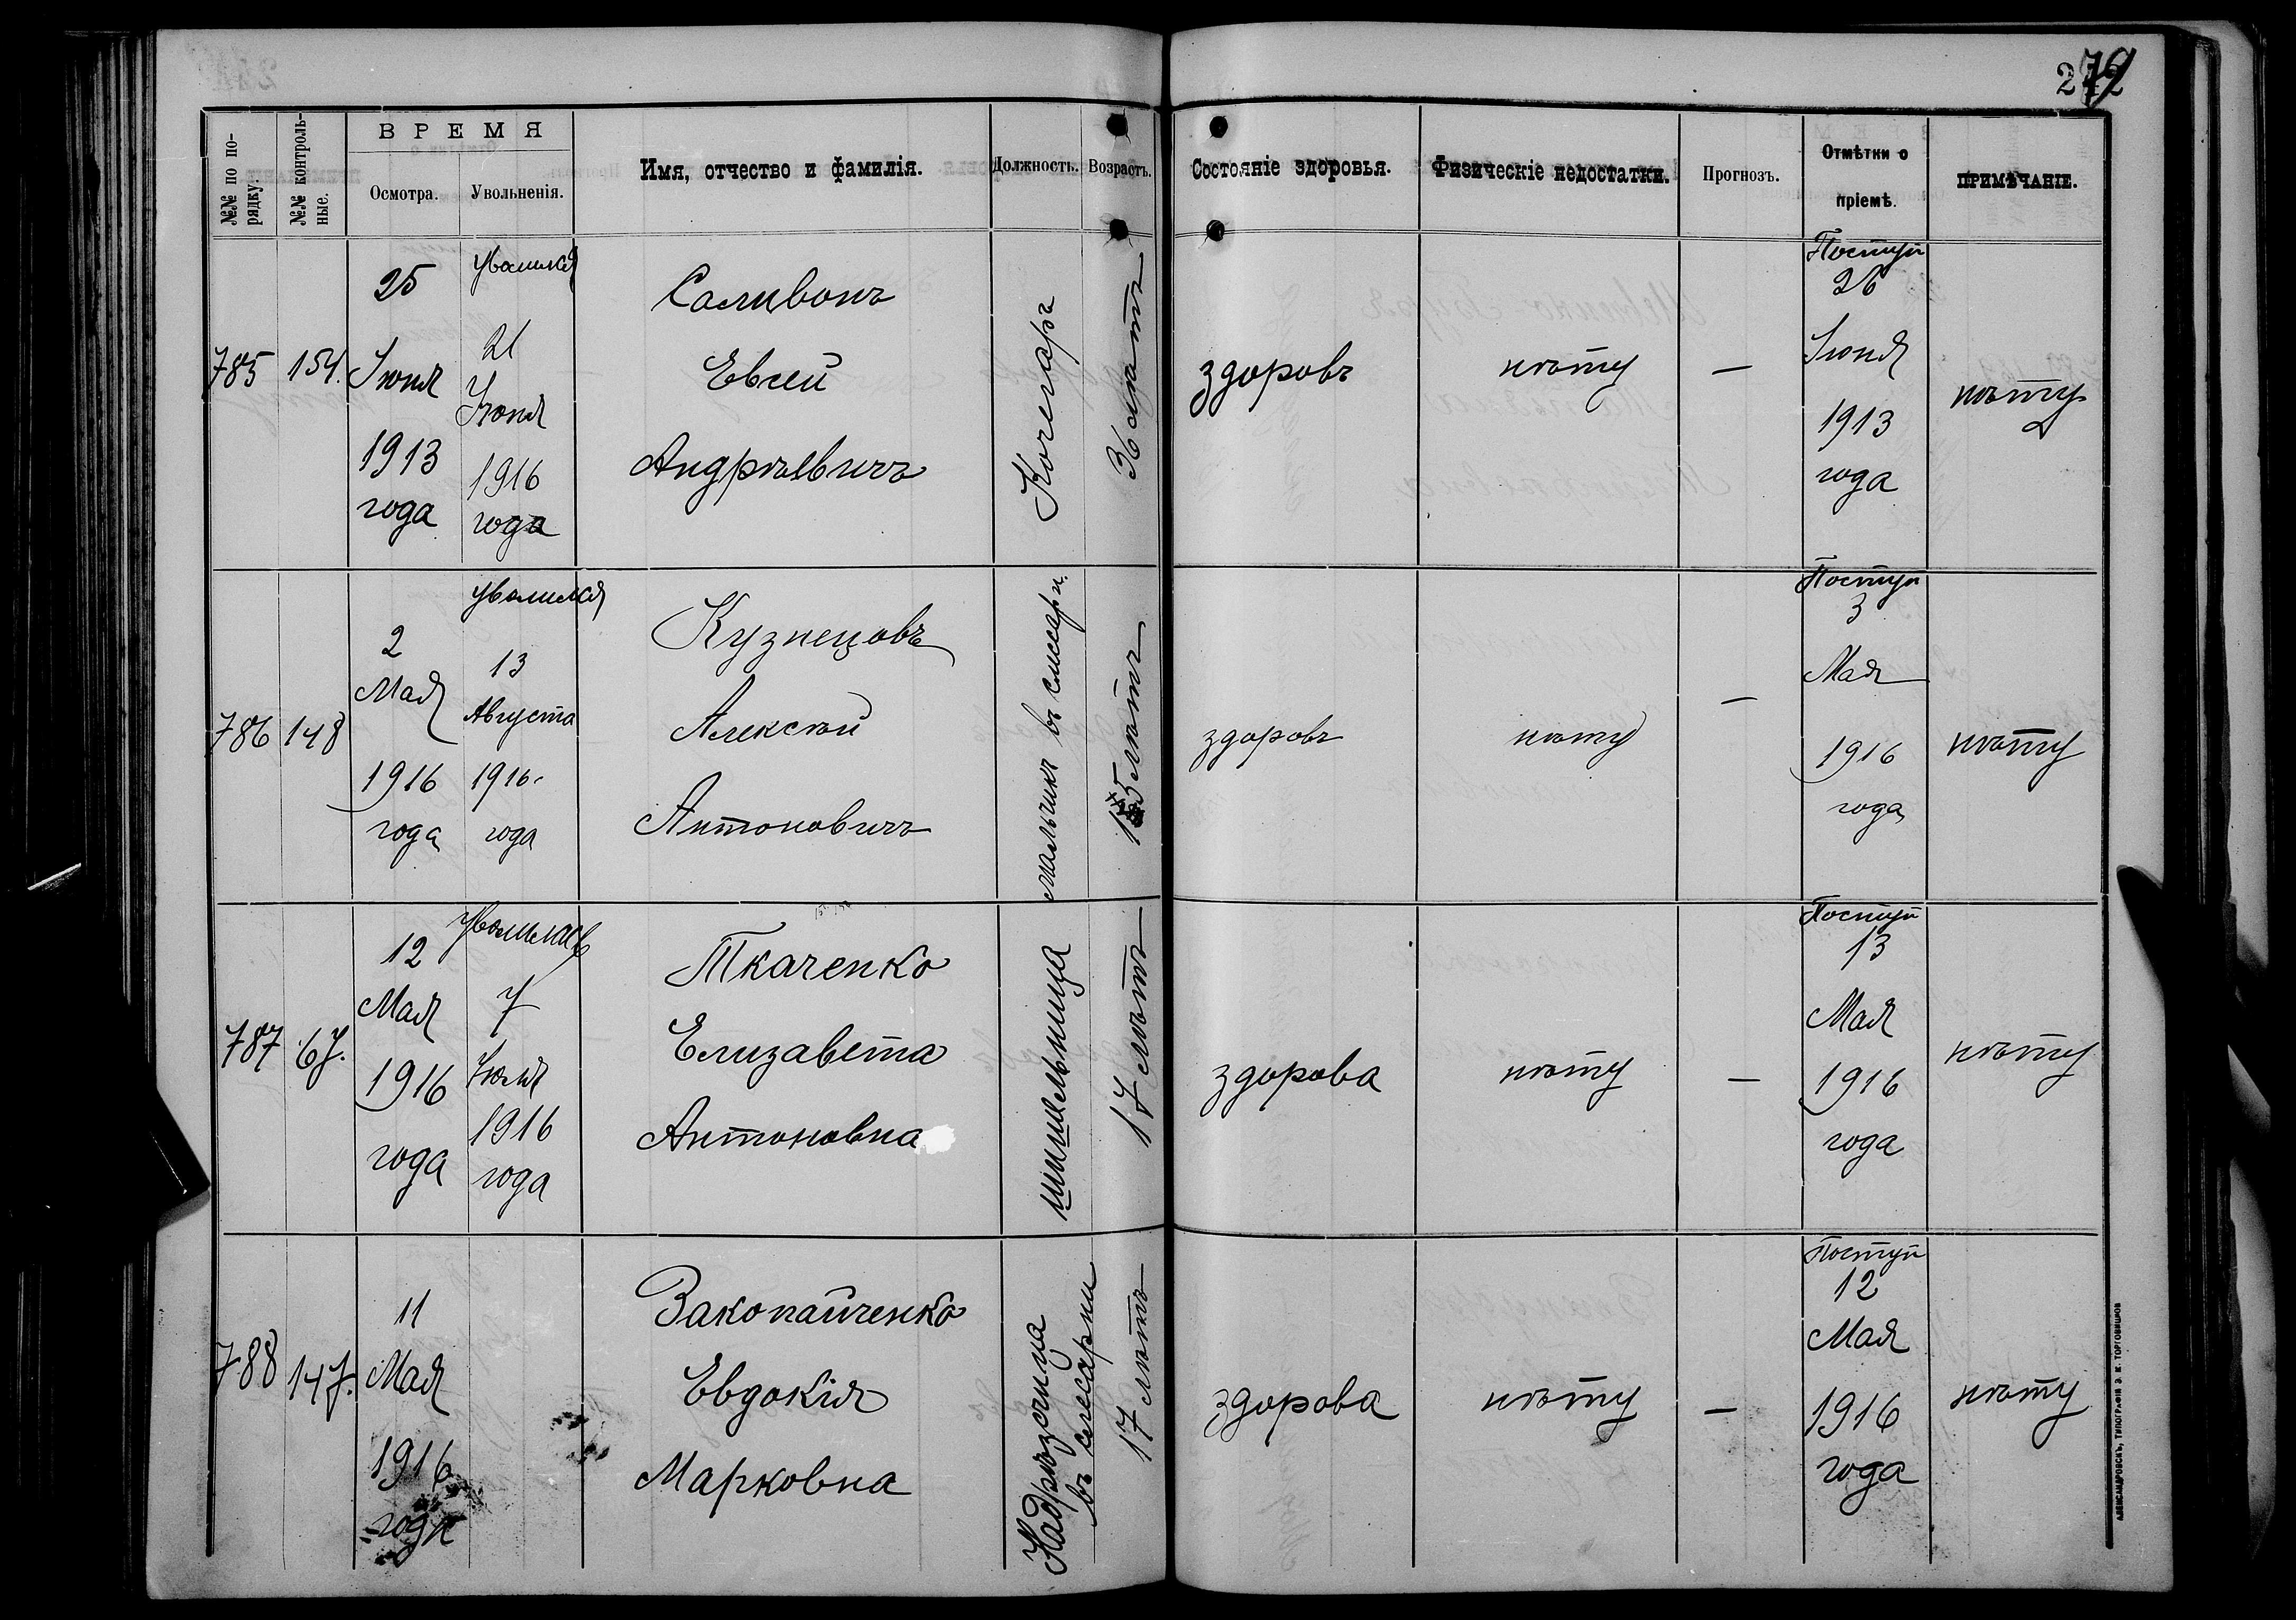 №№ по по-
рядку.
№№ контроль-
ные.
ВРЕМЯ
Осмотра.
Увольненія.
Имя, отчество и фамилія.
Должность.
Возрастъ.
Состояніе здоровья.
Физическіе недостатки.
Прогнозъ.
Отмѣтки о
пріемѣ.
ПРИМѢЧАНІЕ.
785
154.
25
Іюня
1913
года
уволился
21
Іюня
1916
года
Саливонъ
Евсей
Андрѣевичъ
Кочегаръ
36 лѣтъ
здоровъ
нѣту
—
Поступ
26
Іюня
1913
года
нѣту
786
148
2
Мая
1916
года
уволился
13
Августа
1916.
года
Кузнецовъ
Алексѣй
Антоновичъ
мальчикъ въ слесарн.
15 лѣтъ
здоровъ
нѣту
—
Поступ
3
Мая
1916
года
нѣту
787
67.
12
Мая
1916
года
уволилась
7
Іюля
1916
года
Ткаченко
Елизавета
Антоновна
шпильница
17 лѣтъ
здорова
нѣту
—
Поступ
13
Мая
1916
года
нѣту
788
147.
11
Мая
1916
года
Закопайченко
Евдокія
Марковна
въ слесарни
17 лѣтъ
здорова
нѣту
—
Поступ
12
Мая
1916
года
нѣту
АЛЕКСАНДРОВСКЪ, ТИПОГРАФІЯ Э. К. ТОРГОВИЦКОВ